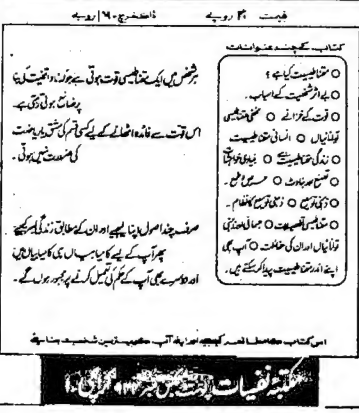 قیمت ۳۰ روپے ڈاک خرچ ۱۶ روپے
کتاب کے چند عنوانات
○ مقناطیسیت کیا ہے؟
○ بے اثر شخصیت کے اسباب۔
○ قوت کے خزانے ○ مخفی مقناطیسی
توانائیاں ○ انسانی مقناطیسیت
○ زندگی مقناطیسیت ہے ○ بنیادی خواہشات
○ تصنع اور بناوٹ ○
○ ذہنی توسیع ○ ذہنی توسیع کا نظام۔
○ مقناطیسی ○ جسمانی اور ذہنی
توانائیاں اور ان کی حفاظت ○ آپ بھی
اپنے اندر مقناطیسیت پیدا کر سکتے ہیں۔
ہر شخص میں ایک مقناطیسی قوت ہوتی ہے جو ناواقفیت کی بنا
پر ضائع ہوتی رہتی ہے۔
اس قوت سے فائدہ اٹھانے کے لیے کسی قسم کی مشق یا ریاضت
کی ضرورت نہیں ہوتی۔
صرف چند اصول اپنا لیجیے اور ان کے مطابق زندگی بسر کیجیے
پھر آپ کے لیے کامیابیاں ہی کامیابیاں ہیں
اور دوسرے بھی آپ کے حکم کی تعمیل کرنے پر مجبور ہوں گے۔
اس کتاب کا مطالعہ کیجیے اور اپنے آپ کو بہترین شخصیت بنائیے
مکتبہ نفسیات پوسٹ بکس نمبر کراچی